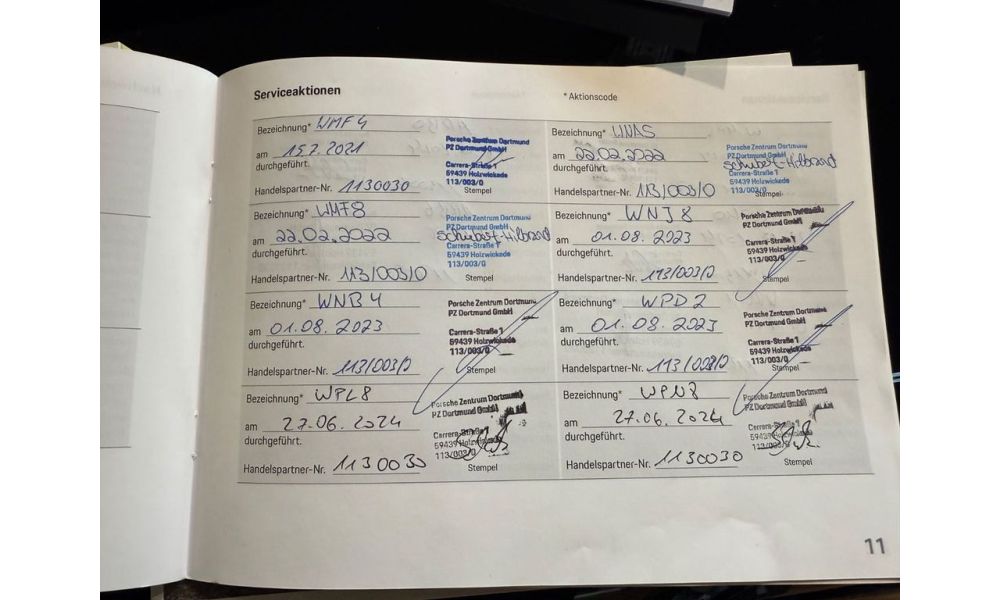 Serviceaktionen
* Aktionscode
Bezeichnung* WMF4
am 15.2.2021
durchgeführt.
Handelspartner-Nr. 1130030
Porsche Zentrum Dortmund
PZ Dortmund GmbH
Carrera-Straße 1
59439 Holzwickede
113/003/0
Stempel
Bezeichnung* WNA5
am 22.02.2022
durchgeführt.
Handelspartner-Nr. 113/003/0
Porsche Zentrum Dortmund
PZ Dortmund GmbH
Schubert-Hilbrand
Carrera-Straße 1
59439 Holzwickede
113/003/0
Stempel
Bezeichnung* WMF8
am 22.02.2022
durchgeführt.
Handelspartner-Nr. 113/003/0
Porsche Zentrum Dortmund
PZ Dortmund GmbH
Schubert-Hilbrand
Carrera-Straße 1
59439 Holzwickede
113/003/0
Stempel
Bezeichnung* WNJ8
am 01.08.2023
durchgeführt.
Handelspartner-Nr. 113/003/0
Porsche Zentrum Dortmund
PZ Dortmund GmbH
Carrera-Straße 1
59439 Holzwickede
113/003/0
Stempel
Bezeichnung* WNB4
am 01.08.2023
durchgeführt.
Handelspartner-Nr. 113/003/0
Porsche Zentrum Dortmund
PZ Dortmund GmbH
Carrera-Straße 1
59439 Holzwickede
113/003/0
Stempel
Bezeichnung* WPD2
am 01.08.2023
durchgeführt.
Handelspartner-Nr. 113/003/0
Porsche Zentrum Dortmund
PZ Dortmund GmbH
Carrera-Straße 1
59439 Holzwickede
113/003/0
Stempel
Bezeichnung* WPL8
am 27.06.2024
durchgeführt.
Handelspartner-Nr. 1130030
Porsche Zentrum Dortmund
PZ Dortmund GmbH
Carrera-Straße 1
59439 Holzwickede
113/003/0
Stempel
Bezeichnung* WPN8
am 27.06.2024
durchgeführt.
Handelspartner-Nr. 1130030
Porsche Zentrum Dortmund
PZ Dortmund GmbH
Carrera-Straße 1
59439 Holzwickede
113/003/0
Stempel
11